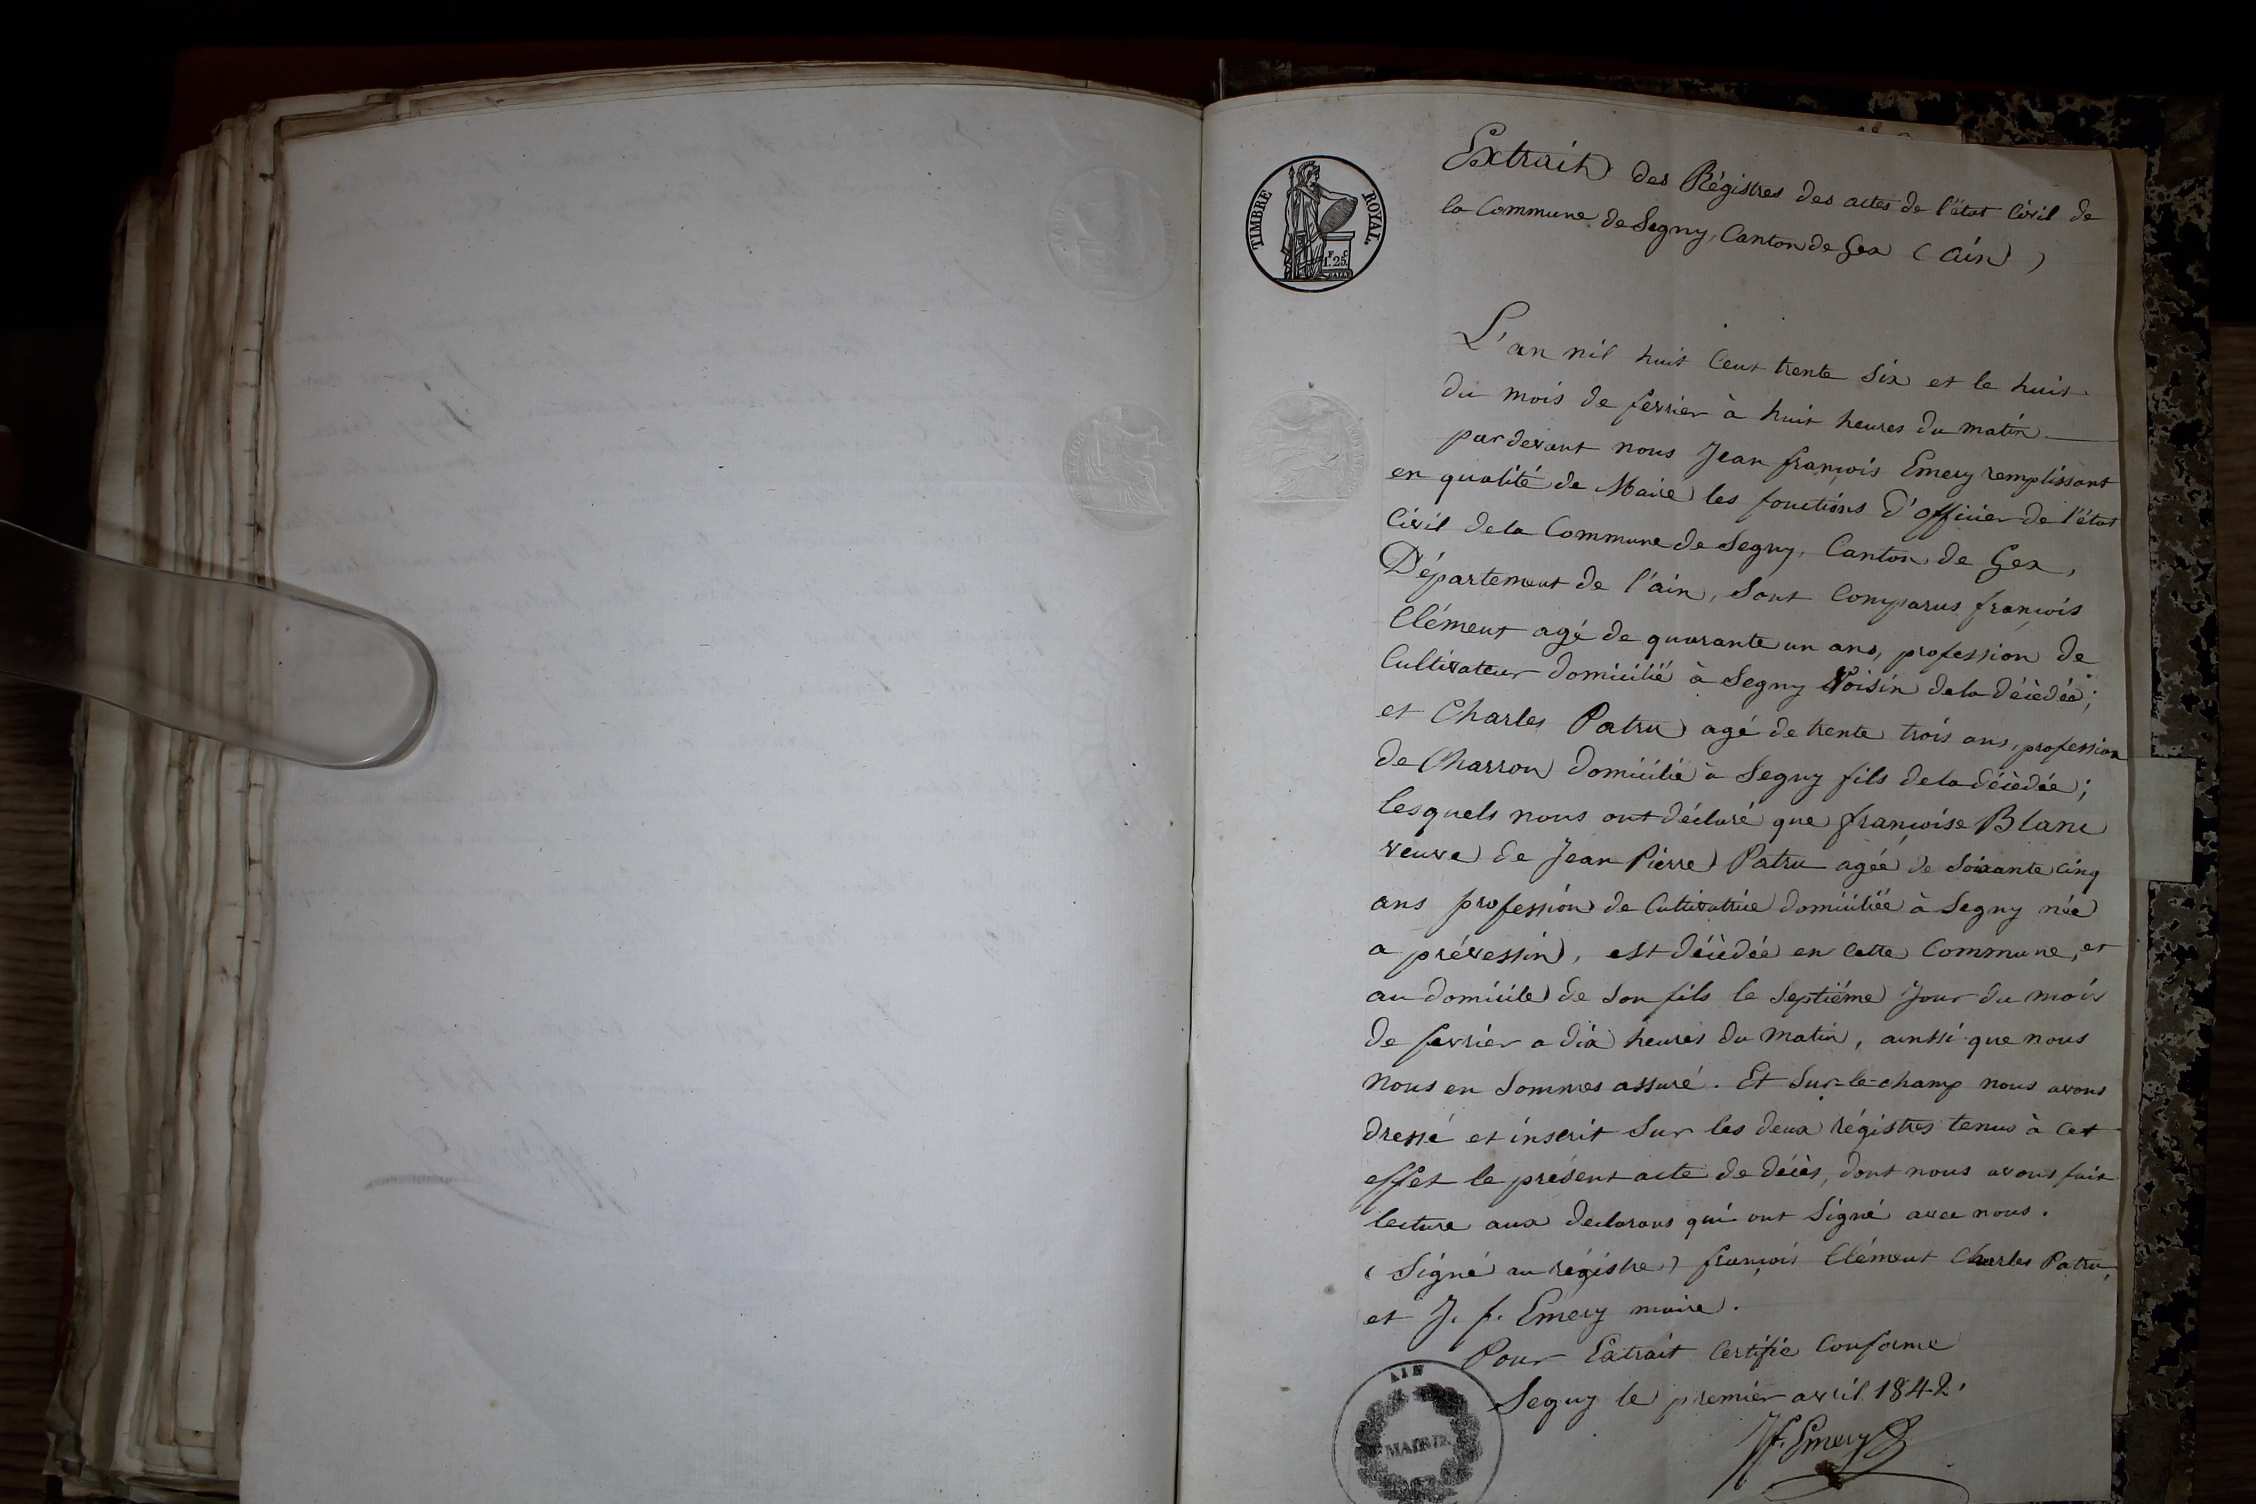 TIMBRE ROYAL
1 F 25 C
Extrait des Régistres des actes de l'état Civil de
la Commune de Segny, Canton de Gex (ain)
L'an mil huit Cent trente Six et le huit
du mois de fevrier à huit heures du matin
pardevant nous Jean françois Emery remplissant
en qualité de Maire les fonctions d'officier de l'état
Civil de la Commune de Segny, Canton de Gex,
Département de l'ain, Sont Comparus françois
Clément agé de quarante un ans, profession de
Cultivateur domicilié à Segny Voisin de la décèdée;
et Charles Patru agé de trente trois ans, profession
de Charron domicilié à Segny fils de la décèdée;
lesquels nous ont déclaré que françoise Blanc
veuve de Jean Pierre Patru agée de Soixante Cinq
ans profession de Cultivatrice domiciliée à Segny née
a prévessin, est décèdée en Cette Commune, et
au domicile de Son fils le Septiéme Jour du mois
de fevrier a dix heures du matin, ainssi que nous
nous en Sommes assuré. Et Sur-le-champ nous avons
dressé et inscrit Sur les deux régistres tenus à Cet
effet le présent acte de décès, dont nous avons fait
lecture aux declarans qui ont Signé avec nous.
(Signé au régistre) françois Clément Charles Patru,
et J. f. Emery maire.
Pour Extrait Certifié Conforme
Segny le premier avril 1842.
Jf. Emery
AIN
MAIRIE